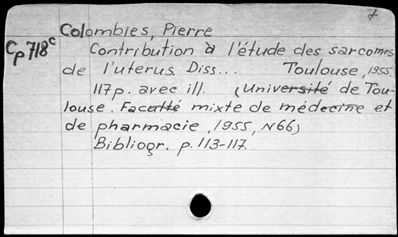 7
Colombies, Pierre
Cp718c
Contribution à l'étude des sarcomes
de l'uterus. Diss... Toulouse, 1955.
117p. avec ill. (Université de Tou-
louse. Faculté mixte de médecine et
de pharmacie, 1955, N66)
Bibliogr. p. 113-117.